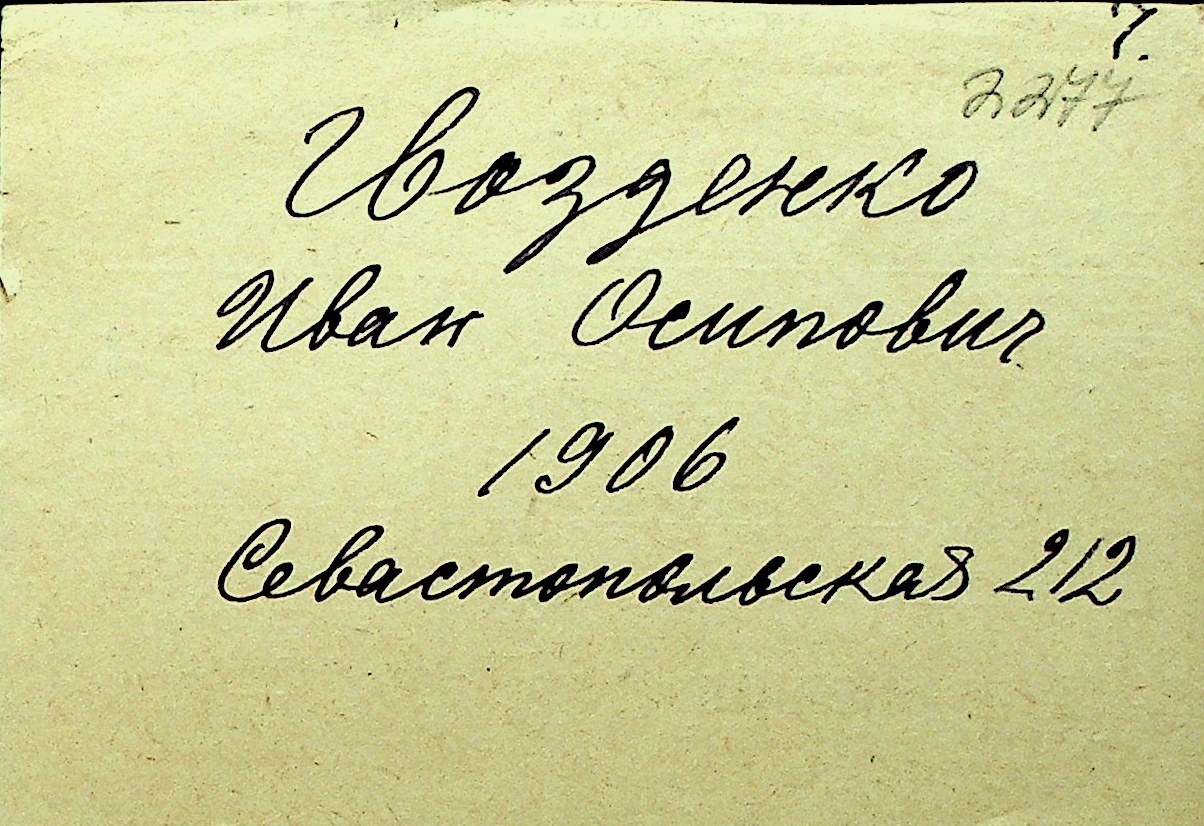 7.
2277
Гвозденко
Иван Осипович
1906
Севастопольская 212